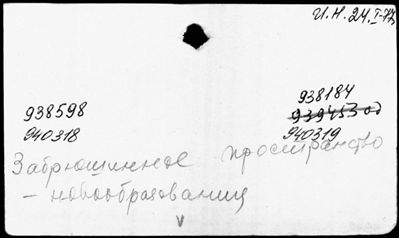 И.Н. 24.I-77
938598
938184
940318
940319
Забрюшинное пространство
– новообразования
V